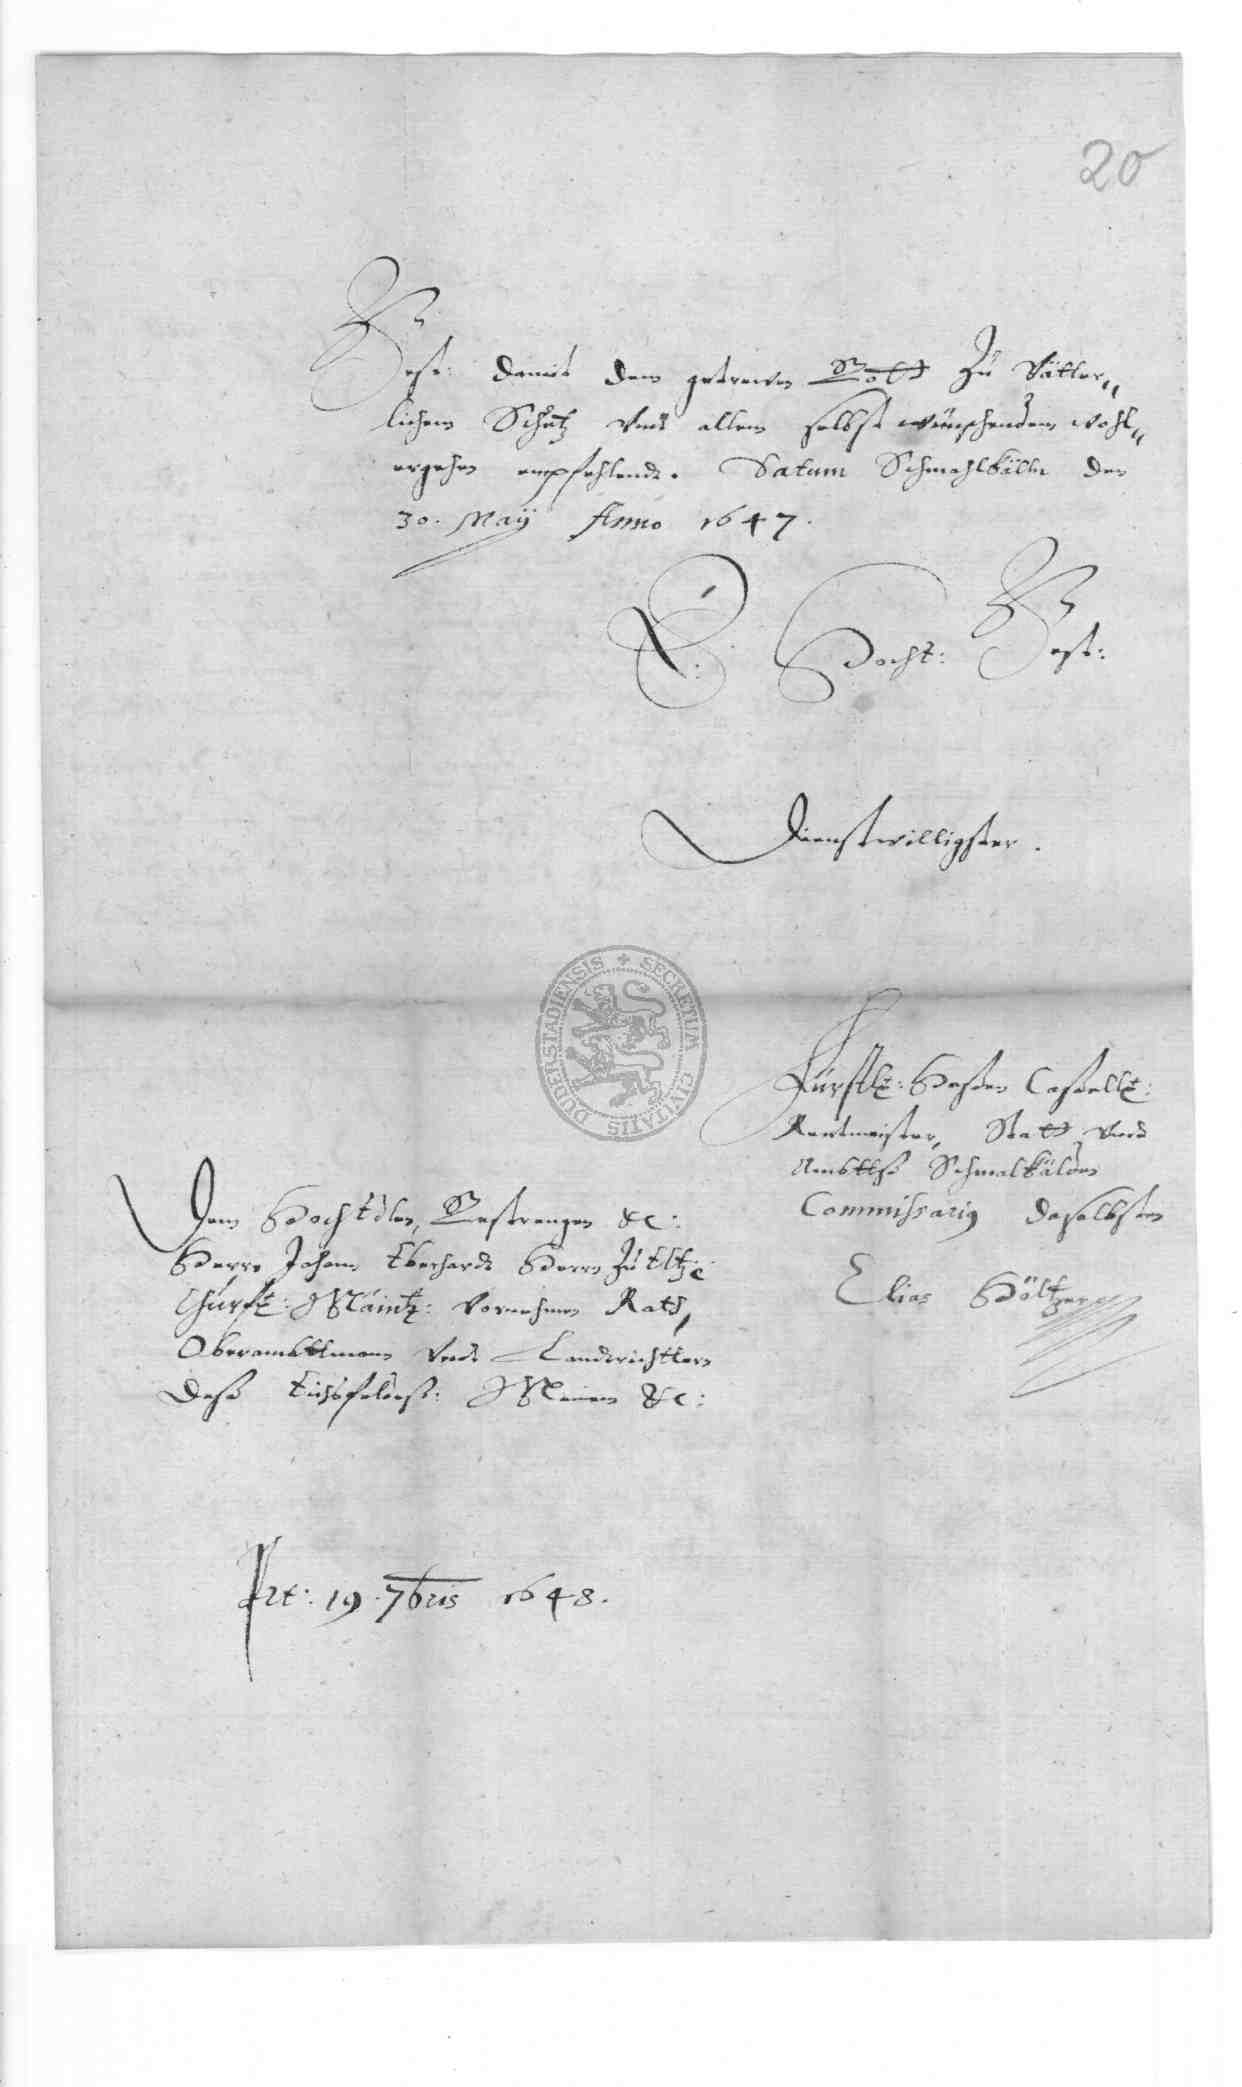 20
Vest: damit dem getrewen Gott zu Vätter„
lichem Schutz vnd allem selbst wünschendem wohl„
ergehen empfehlende. Datum Schmahlkaldn den
30. Maij Anno 1647.
E. Hocht: Vest:
Dienstwilligster.
SECRETUM CIVITATIS DUDERSTADIENSIS
Fürstle: Heßen Caßelle:
Rentmeister, Statt vnd
Ambttß Schmalkalden
Commissarig daselbsten
Elias Höltzer
Dem HochEdlen, Gestrengen &c:
Herrn Johann Eberhardt Herrn zu Eltz &c
Churfl: Mäintz: Vornehmen Rath,
Oberambttmann vndt Landtrichttern
deß Eichsfeldtß: Meinem &c:
Prt: 19. 7bris 1648.